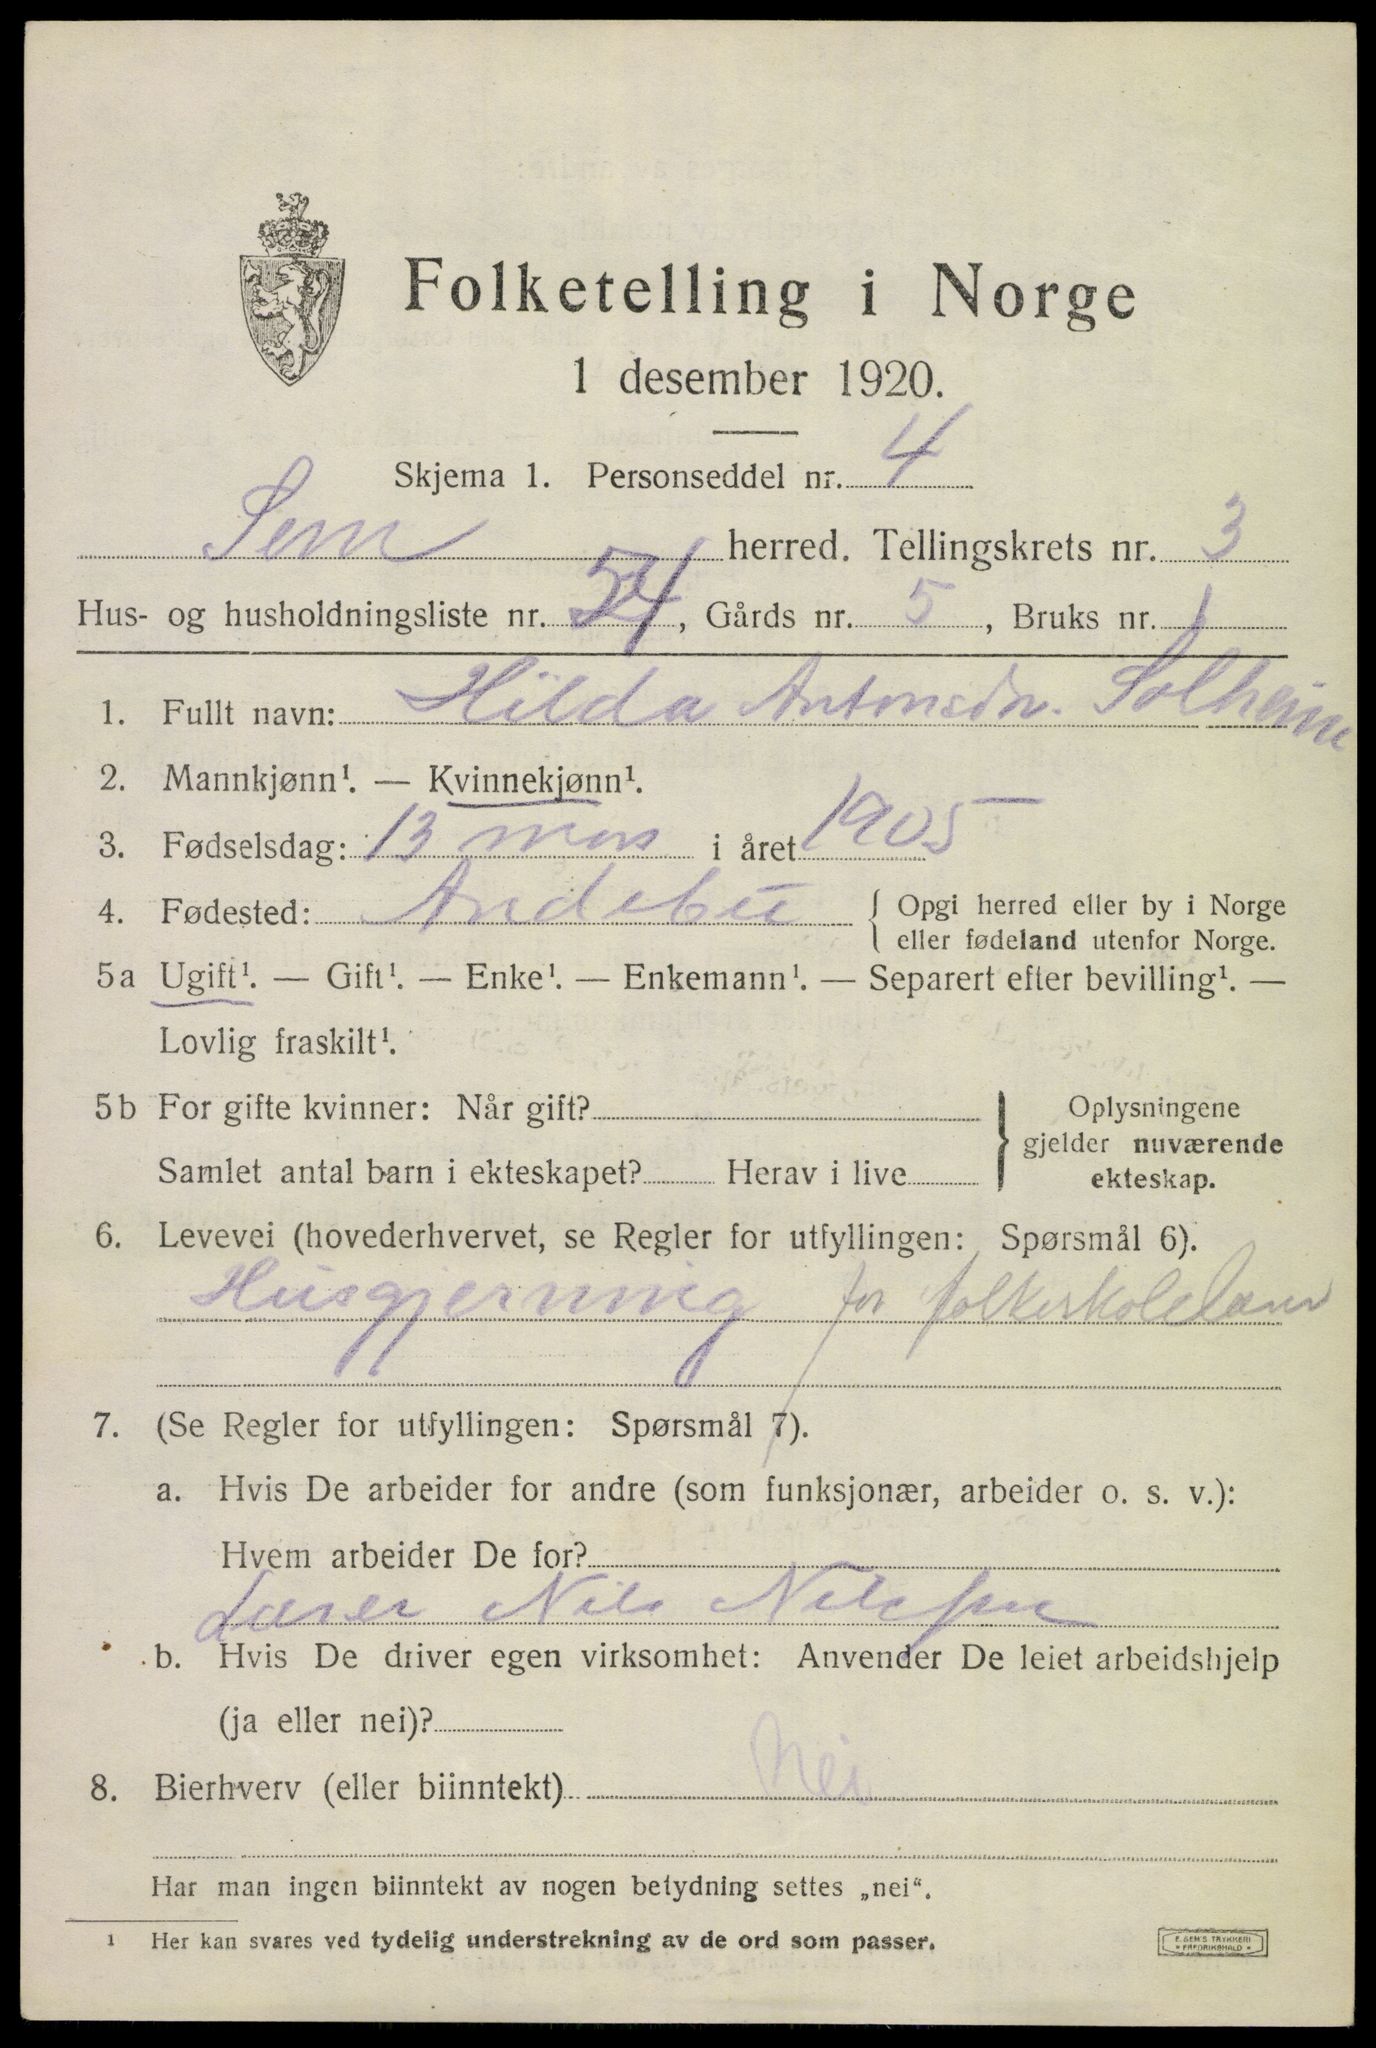 Folketelling i Norge
1 desember 1920.
Skjema 1. Personseddel nr. 4
Sem herred. Tellingskrets nr. 3
Hus- og husholdningsliste nr. 54, Gårds nr. 5, Bruks nr. 1
1. Fullt navn: Hilda Antonsdtr. Solheim
2. Mannkjønn¹. — Kvinnekjønn¹.
3. Fødselsdag: 13 mars i året 1905
4. Fødested: Andebu { Opgi herred eller by i Norge
eller fødeland utenfor Norge.
5a Ugift¹. — Gift¹. — Enke¹. — Enkemann¹. — Separert efter bevilling¹. —
Lovlig fraskilt¹.
5b For gifte kvinner: Når gift?
Samlet antal barn i ekteskapet? Herav i live
} Oplysningene
gjelder nuværende
ekteskap.
6. Levevei (hovederhvervet, se Regler for utfyllingen: Spørsmål 6).
Husgjerning for folkeskolelærer
7. (Se Regler for utfyllingen: Spørsmål 7).
a. Hvis De arbeider for andre (som funksjonær, arbeider o. s. v.):
Hvem arbeider De for?
Lærer Nils Nilssen
b. Hvis De driver egen virksomhet: Anvender De leiet arbeidshjelp
(ja eller nei)?
8. Bierhverv (eller biinntekt) Nei
Har man ingen biinntekt av nogen betydning settes „nei“.
¹ Her kan svares ved tydelig understrekning av de ord som passer.
E. SEM'S TRYKKERI
* FREDRIKSHALD *